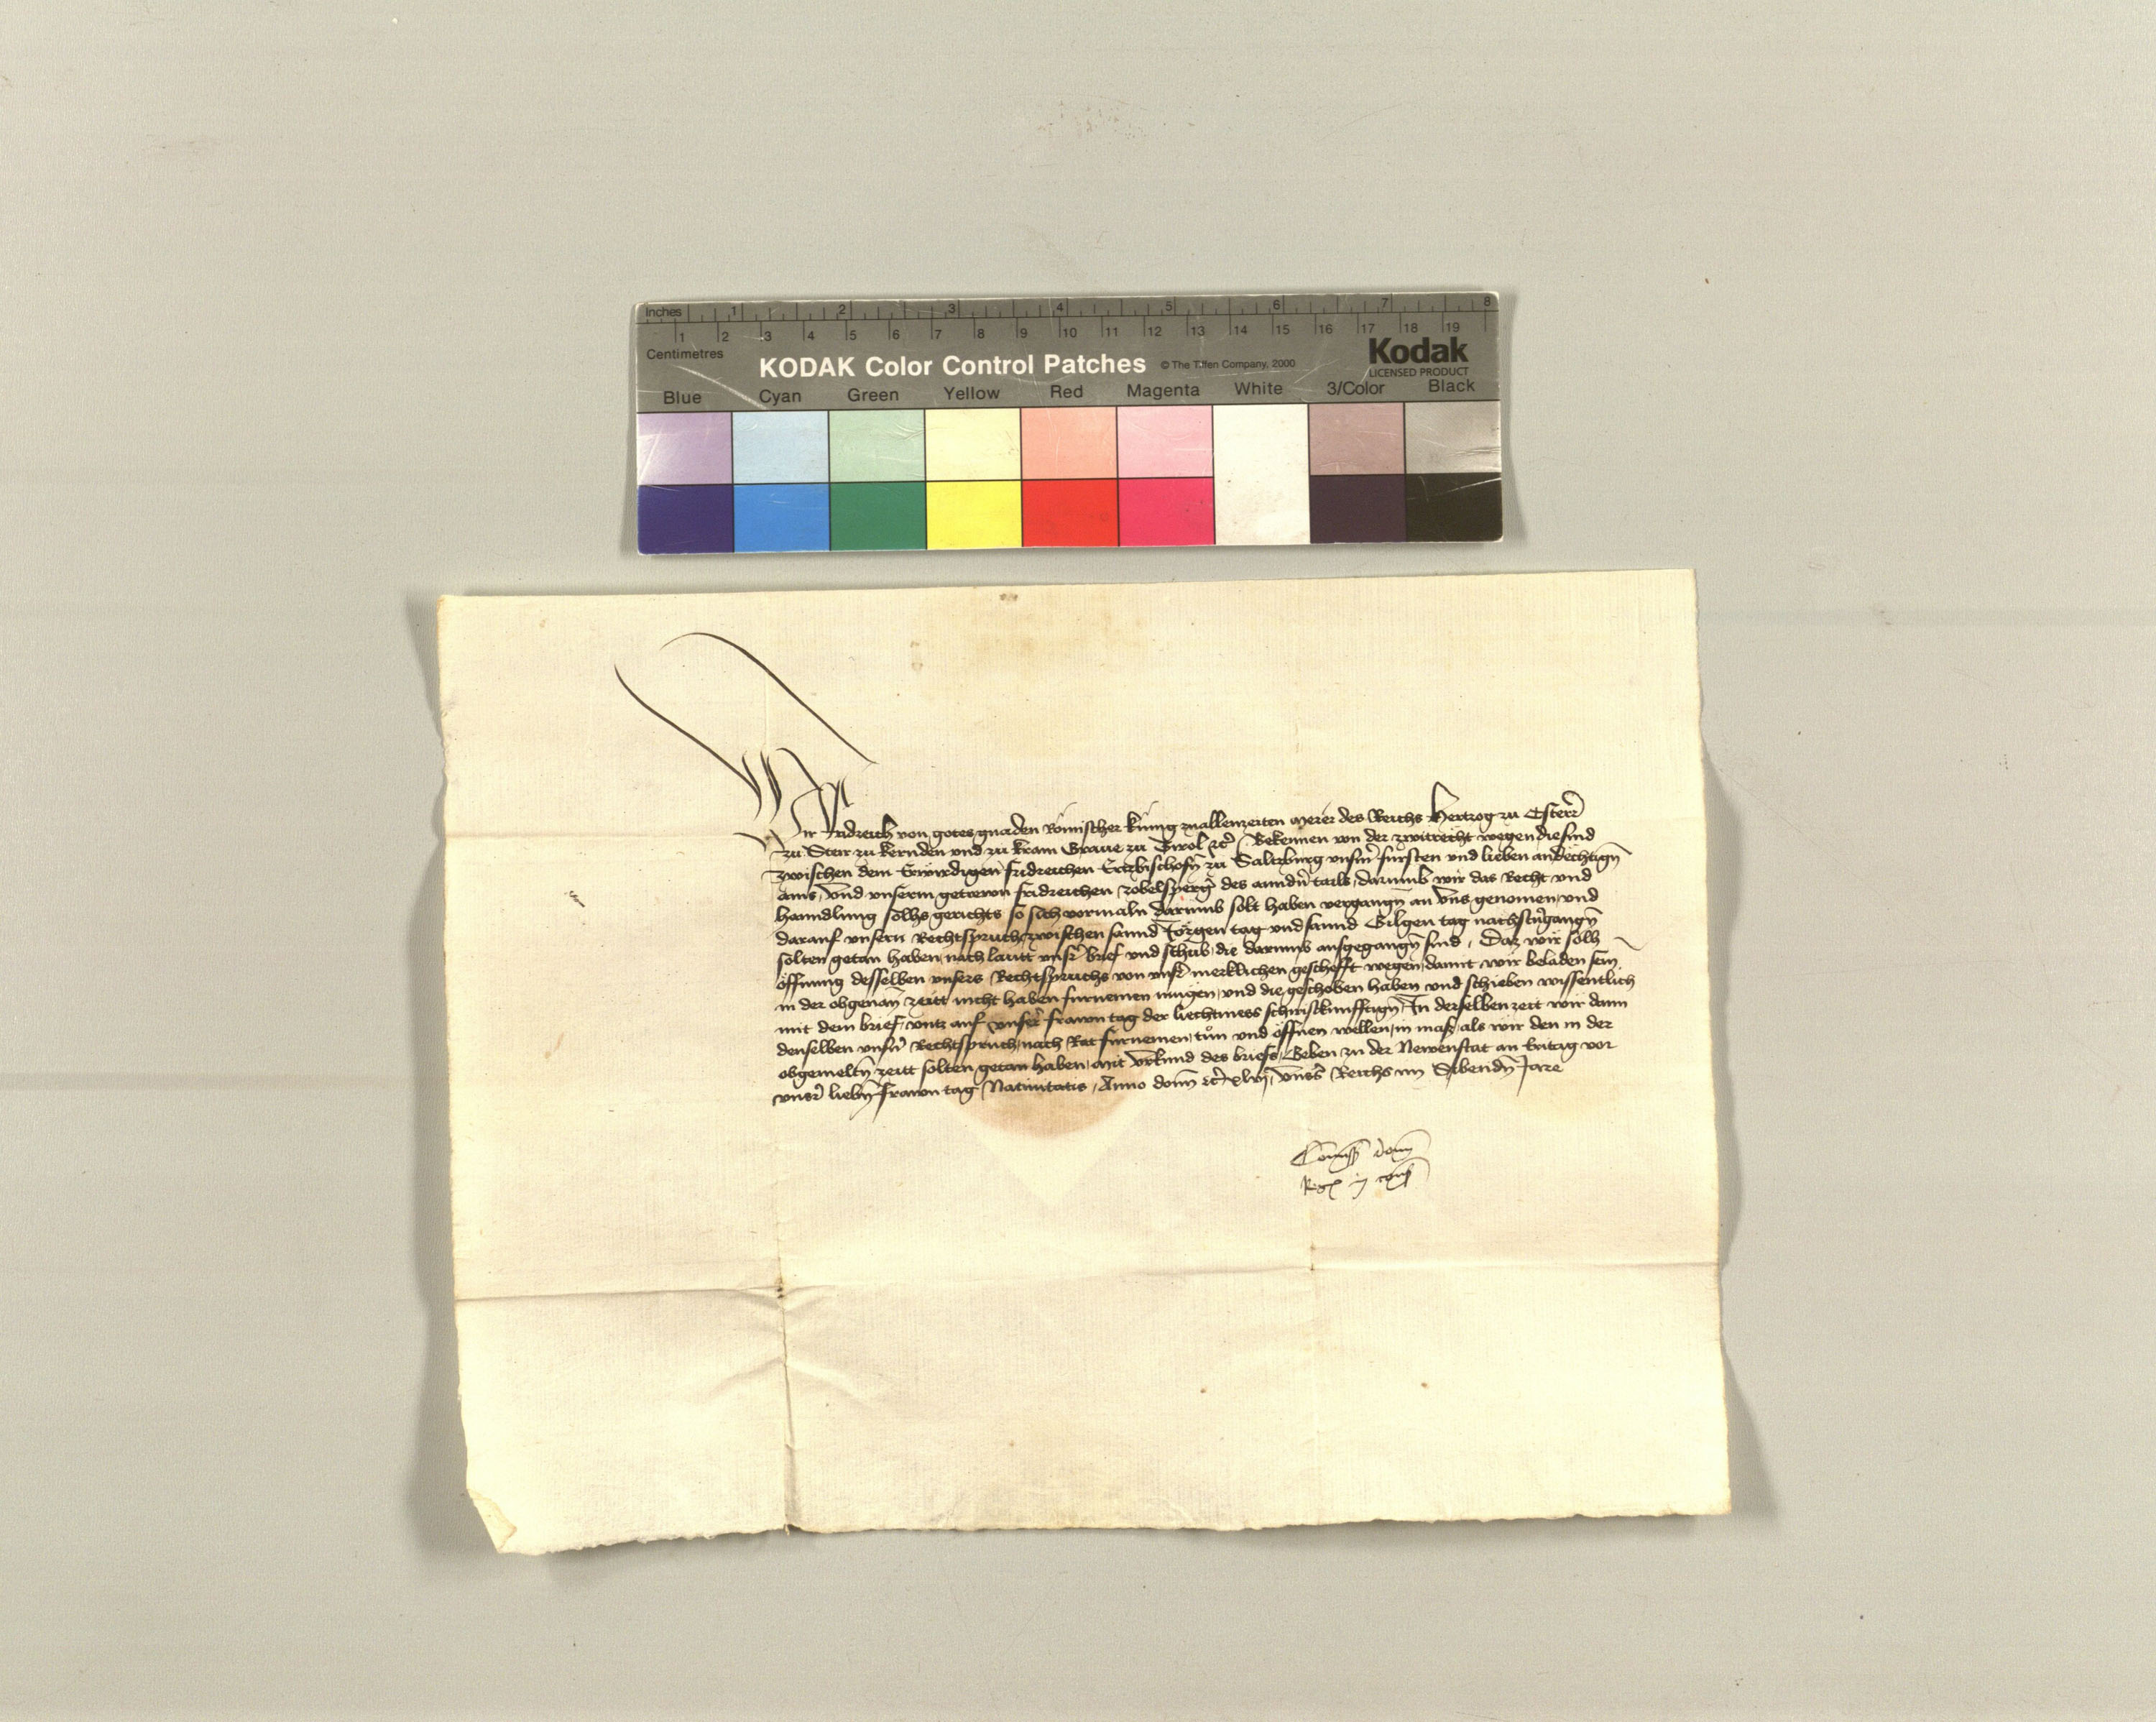 Inches 1 2 3 4 5 6 7 8
1 2 3 4 5 6 7 8 9 10 11 12 13 14 15 16 17 18 19
Centimetres
KODAK Color Control Patches © The Tiffen Company, 2000 Kodak
LICENSED PRODUCT
Blue Cyan Green Yellow Red Magenta White 3/Color Black
Wir Fridreich von gotes gnaden Römischer kunig zuallenzeiten merer des Reichs Hertzog zu Österr
zu Steir zu kernden und zu krain Graue zu Tirol etc Bekennen von der zwitrecht wegen die sind
zwischen dem Erwirdigen Fridreichen Ertzbischofn zu Saltzburg unserm fursten und lieben andechtign
ains, und unserm getrewn Fridreichen zobelsperg des anndern tails, darumb wir das Recht und
hanndlung solhs gerichts so sich vormaln darumb solt haben vergangn an uns genomen, und
darauf unsern Rechtspruch zwischen sannd Jörgen tag und sannd Gilgen tag nachstuergangn
solten getan haben, nach lautt unsr brief und schub, die darumb ausgegangn sind, Daz wir solh
öffnung desselben unsers Rechtspruchs von unsr merklichen geschefft wegen, damit wir beladen sein
in der obgenan zeitt nicht haben furnemen mugen, und die geschoben haben und schieben wissentlich
mit dem brief, untz auf unser frawn tag der liechtmess schiristkunfftign, In derselben zeit wir dann
denselben unsern Rechtspruch, nach Rat furnemen, tůn und öffnen wellen, in mass, als wir den in der
obgemeltn zeitt solten getan haben, Mit urkund des briefs, Geben zu der Newenstat an Eritag vor
unsr liebn frawn tag Natiuitatis, Anno domi etc xlvj, unsrs Reichs im Sibendn Jare
Comiss domi
Regs in cons